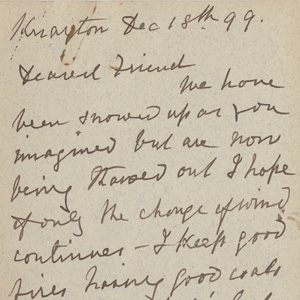 Knayton Dec 18th 99.
Dearest Friend
We have
been snowed up as you
imagined but are now
being thawed out I hope
if only the change of wind
continues – I keep good
fires having good coals